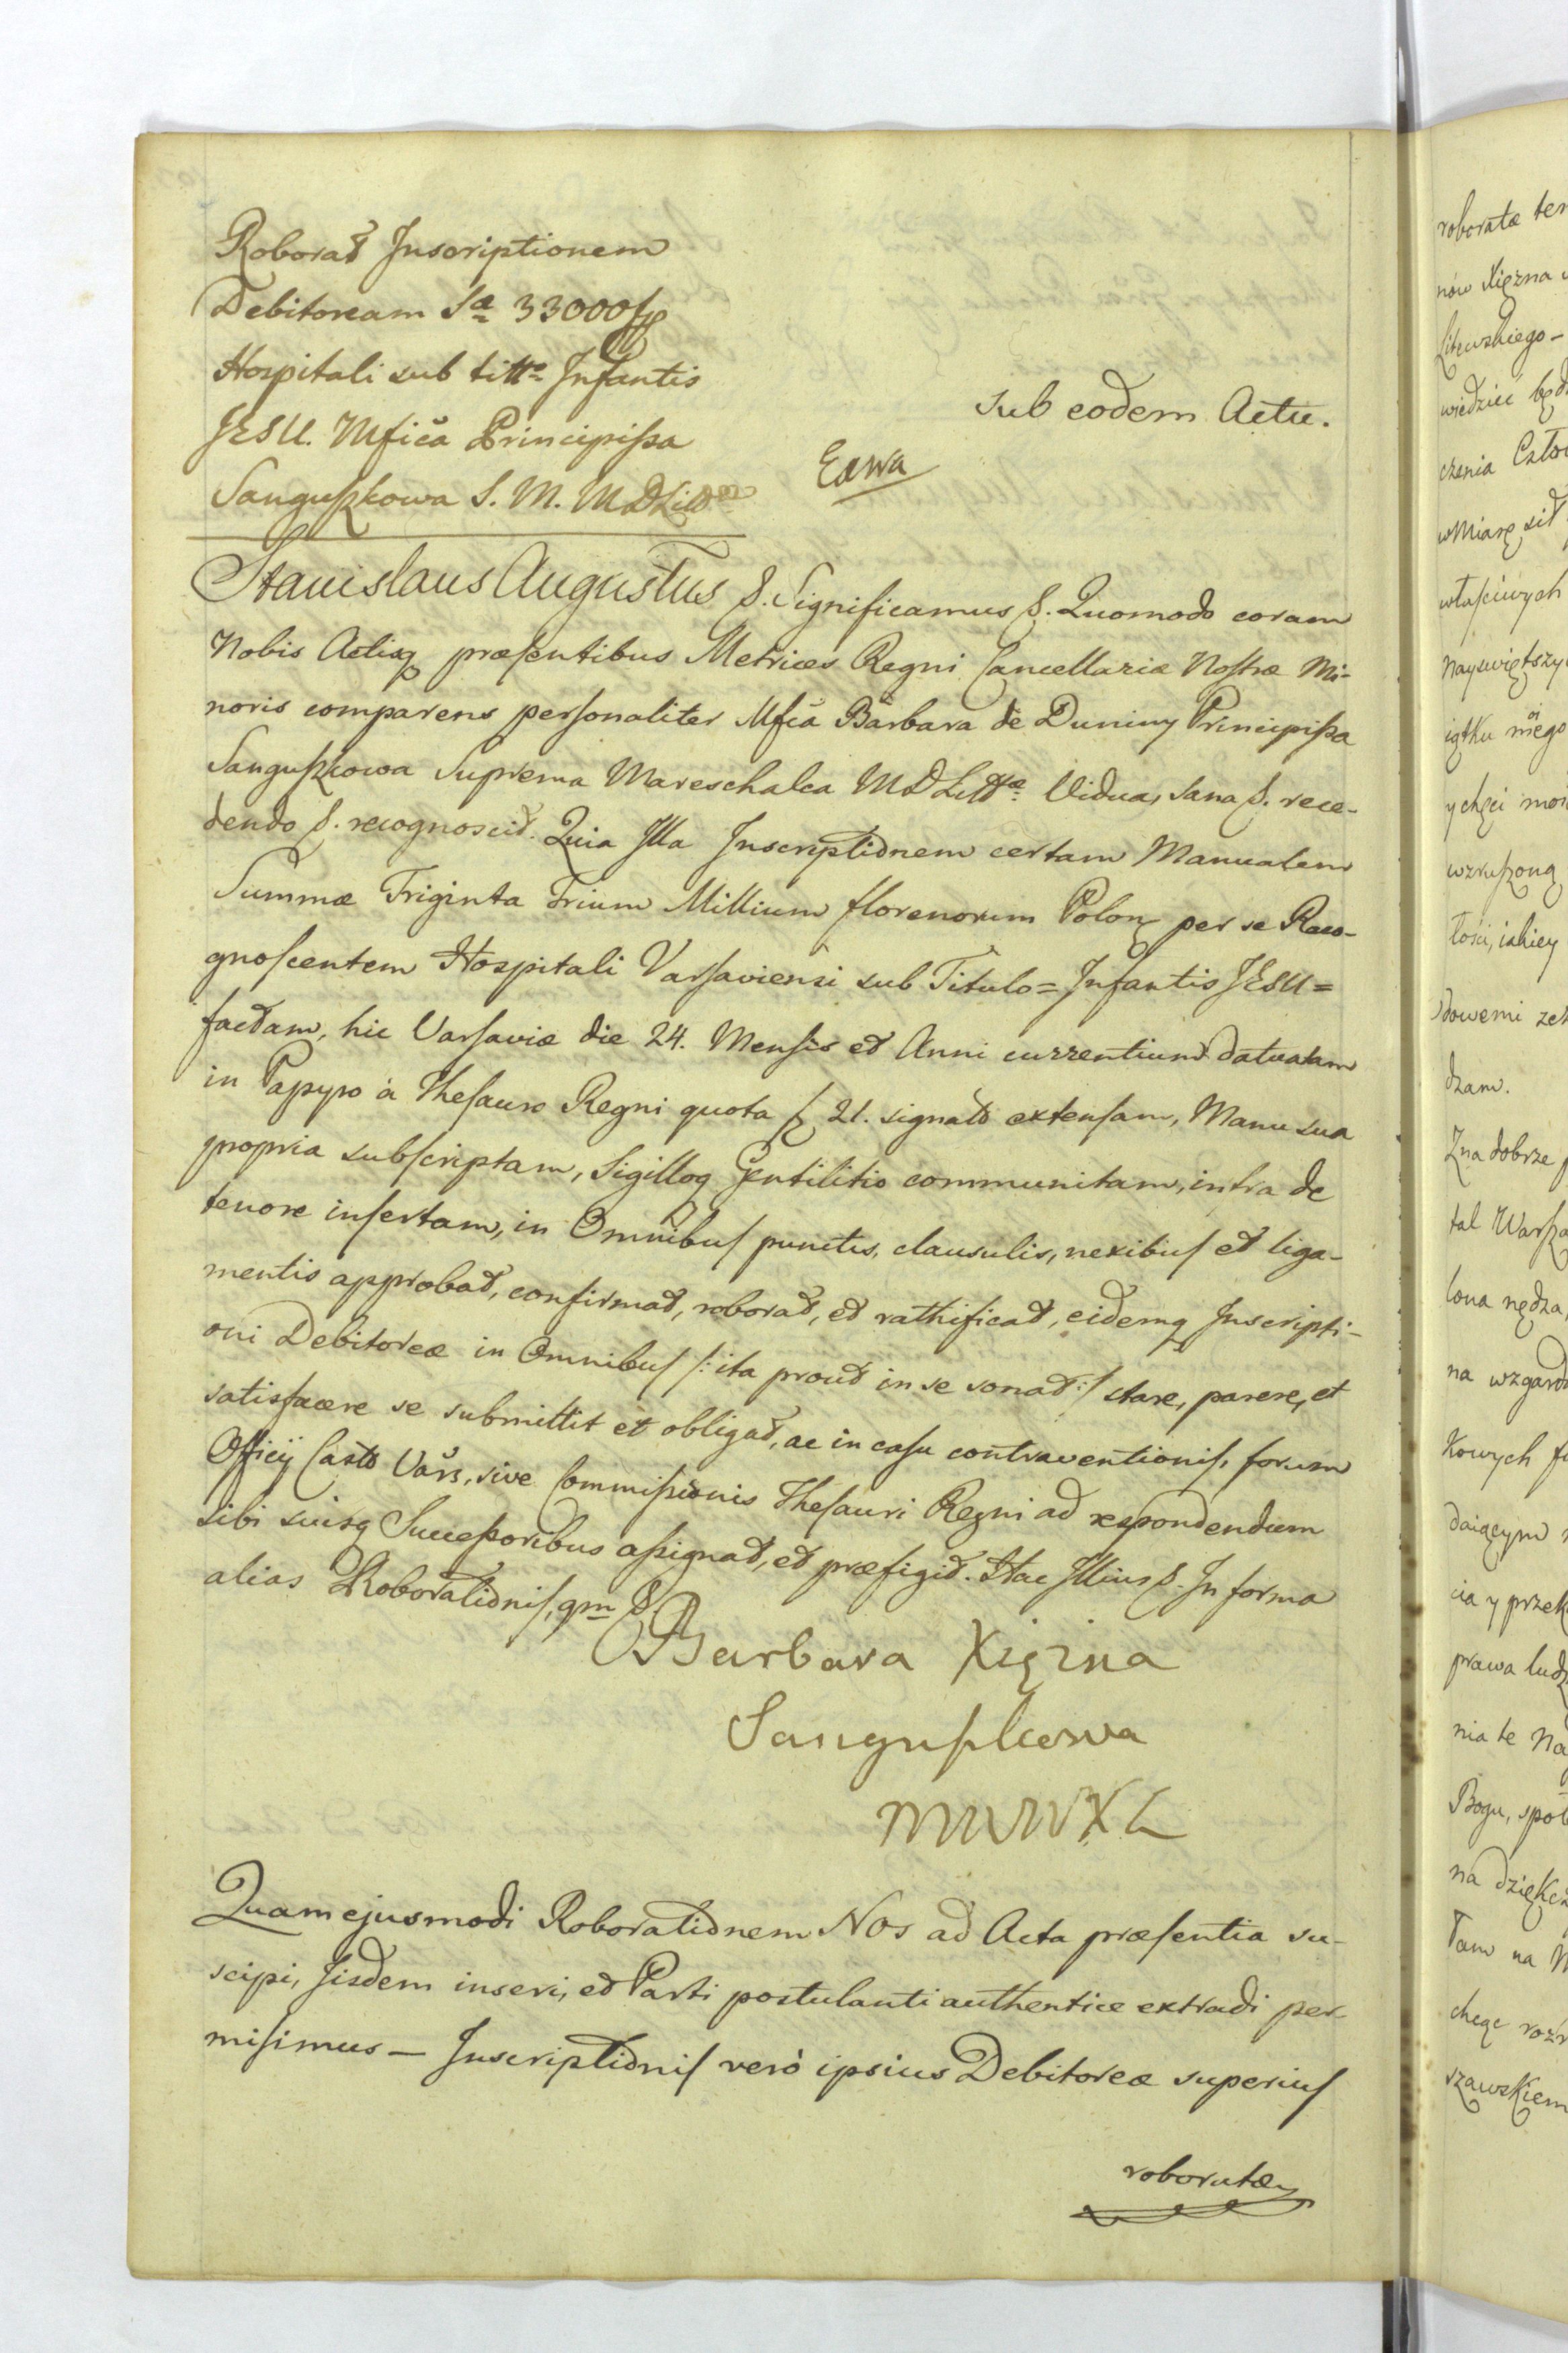 Roborat Inscriptionem
Debitoream Sæ 33000 fp
Hospitali sub titto Infantis
JESU. Mfica Principissa
Sanguszkowa S. M. M D Litt
sub eodem Actu.
Stanislaus Augustus &. Significamus &. Quomodo coram
Nobis Actisq præsentibus Metrices Regni Cancellariæ Nostræ Mi-
noris comparens personaliter Mfca Barbara de Duniny Principissa
Sanguszkowa Suprema Mareschalca M D Littæ Vidua, sana &. rece-
dendo &. recognoscit. Quia Illa Inscriptionem certam Manualem
Summæ Triginta Trium Millium florenorum Polon per se Reco-
gnoscentem Hospitali Varsaviensi sub Titulo = Infantis JESU =
factam, hic Varsaviæ die 24. Mensis et Anni currentium datuatam
in Papyro à Thesauro Regni quota 21. signato extensam, Manu sua
propria subscriptam, Sigilloq Gentilitio communitam, infra de
tenore insertam, in Omnibus punctis, clausulis, nexibus et liga-
mentis approbat, confirmat, roborat, et rathificat, eidemq Inscripti-
oni Debitoreæ in Omnibus /: ita prout in se sonat :/ stare, parere, et
satisfacere se submittit et obligat, ac in casu contraventionis, forum
Officij Casto Vars, sive Commissionis Thesauri Regni ad respondendum
sibi suisq Successoribus assignat, et præfigit. Hac Illius &. In forma
alias Roborationis, qm &.
Barbara Xiężna
Sanguszkowa
MWWXL
Quam ejusmodi Roborationem Nos ad Acta præsentia su-
scipi, Iisdem inseri, et Parti postulanti authentice extradi per-
misimus — Inscriptionis verò ipsius Debitoreæ superius
roboratæ
roboratæ ten
nów Xiężna
Litewskiego -
wiedzieć będ
czenia Czło
w Miarę sił
właściwych
Nayświętszy
iątku moiego
y chęci moi
wzruszoną
łości, iakiey
dowemi zeb
dzam.
Zna dobrze p
tal Warsza
lona nędza,
na wzgard
kowych fu
daiącym
cia y przek
prawa ludz
nia te Na
Bogu, społ
na dziękcz
Tam na M
chcąc roz
szawskiem